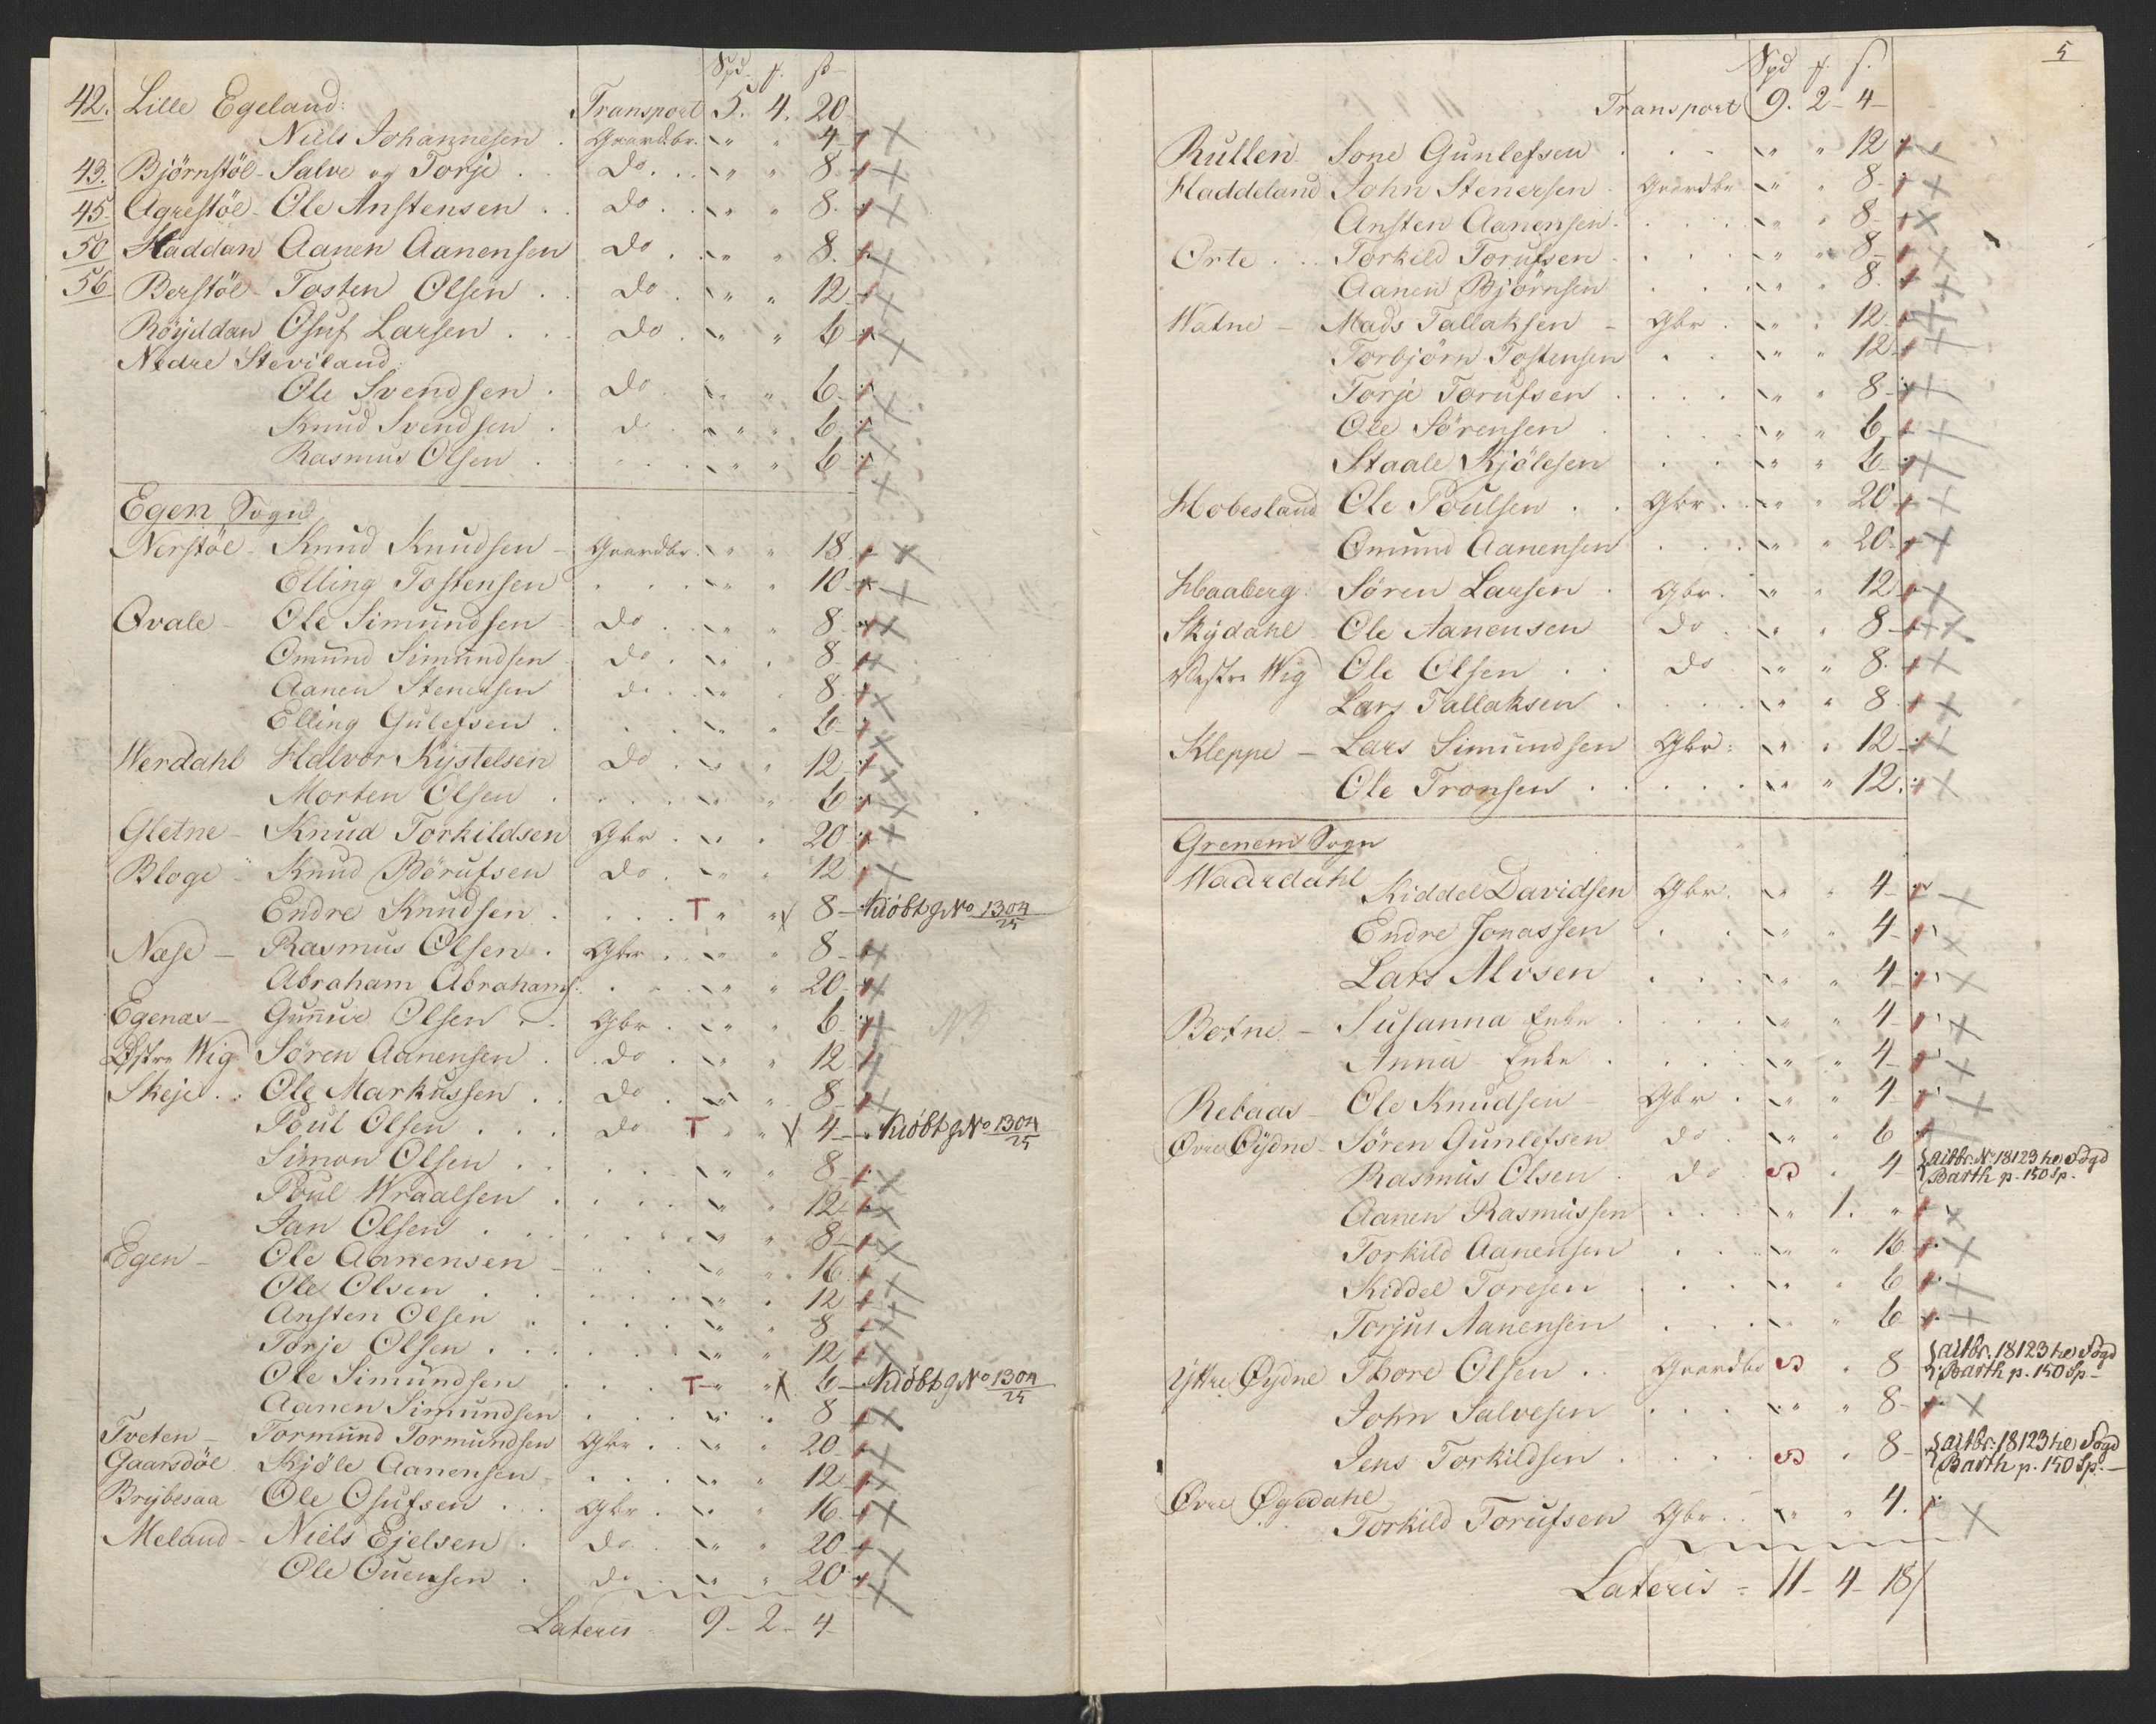 Spd. f. ß
42. Lille Egeland: Transport 5. 4. 20
Niels Johannesen . Gaardbr. " " 4
43. Bjørnstöl - Salve og Torje . . Do. . " " 8.
45. Agrestöl - Ole Anstensen . . Do . " " 8.
50 Haddan Aanen Aanensen Do . " " 8.
56 Berstöl - Tosten Olsen . . Do . " " 12
Röyddan Osuf Larsen . . . Do . " " 6
Nedre Steviland.
Ole Svendsen . Do " " 6
Knud Svendsen . d " " 6
Rasmus Olsen . . . " " 6
Egen Sogn
Nerstöl - Knud Knudsen - Gaardbr. " " 18
Elling Tostensen . . . " " 10
Qvale - Ole Simundsen - Do . " " 8
Omund Simundsen . Do . " " 8
Aanen Stenersen do . " " 8
Elling Gulefsen . . . " " 6
Werdahl Halvor Kystelsen Do . " " 12
Morten Olsen . . . . " " 6
Gletne - Knud Torkildsen Gbr . " " 20
Bloge - Knud Börufsen Do . " " 12
Endre Knudsen . . . T " " 8 - Kiöbt g No 1304/25
Nøse - Rasmus Olsen . Gbr . " " 8
Abraham Abrahams. . . " " 20
Egenæs - Gunnar Olsen . . Gbr . " " 6 NB
Østre Wig Sören Aanensen . . do . " " 12
Skeje . : Ole Markussen . . Do . " " 8
Poul Olsen . . . do T " " 4 - Kiöbt g No 1304/25
Simon Olsen . . . . " " 8
Poul Wraalsen . . . . " " 12
Jan Olsen . . . . . " " 8
Egen - Ole Aanensen - . . " " 16
Ole Olsen . . . . " " 12
Ansten Olsen . . . . " " 8
Torje Olsen . . . . . " " 12
Ole Simundsen . . . T " " 6 - Kiöbt g No 1304/25
Aanen Simundsen . . . " " 8
Tveten - Tormund Tormundsen Gbr . " " 20
Gaarsdöl Kjöle Aanensen - . . . " " 12
Brybesaa Ole Osufsen . . Gbr . " " 16
Meland - Niels Ejelsen . Do . " " 20
Ole Ouensen . do " " 20
Lateris - 9 - 2 - 4
5
Spd f. ß.
Transport 9. 2 - 4
Rullen Sone Gunlefsen . . . " " 12
Haddeland John Stenersen . Gaardbr " " 8
Ansten Aanensen . . . " " 8
Orte . . . Torkild Torufsen . . . " " 8
Aanen Björnsen . . . " " 8.
Watne - Mads Tallaksen - Gbr . " " 12
Torbjörn Tostensen . . " " 12
Torje Torufsen . . . " " 8
Ole Sörensen . . . " " 6
Staale Kjölesen . . " " 6
Hobesland Ole Poulsen . . Gbr . . " " 20
Omund Aanensen . . . " " 20
Haaberg . Sören Larsen . Gbr . " " 12
Skydahl Ole Aanensen Do . " " 8
Vestre Wig Ole Olsen . . do " " 8.
Lars Tallaksen . . . " " 8
Kleppe - Lars Simundsen Gbr : " " 12
Ole Tronsen . . . . " " 12.
Grenem Sogn
Waardahl Kiddel Davidsen Gbr. " " 4
Endre Jonassen . . . " " 4
Lars Alvsen . . . " " 4
Botne - Susanna Enke . . . " " 4
Anna Enke . . . " " 4
Rebaas - Ole Knudsen - Gbr . " " 4
Øvre Øydne - Sören Gunlefsen do . " " 6
Rasmus Olsen . do S " 4 { aitbr. No 18123 he Søgd
Barth p. 150 Sp.
Aanen Rasmussen . . . " 1. "
Torkild Aanensen . . . " " 16
Kiddel Toresen . . . " " 6
Torjus Aanensen . . . " " 6
Yttre Øydne Thore Olsen . . Gaardbr S " 8 { aitbr. 18123 he Søgd
Barth p. 150 Sp
John Salvesen . . . " " 8
Jens Torkildsen . . . S " 8 { aitbr. 18123 he Søgd
Barth p. 150 Sp. -
Øvre Øgedahl
Torkild Torufsen Gbr . " " 4.
Lateris = 11 - 4 - 18